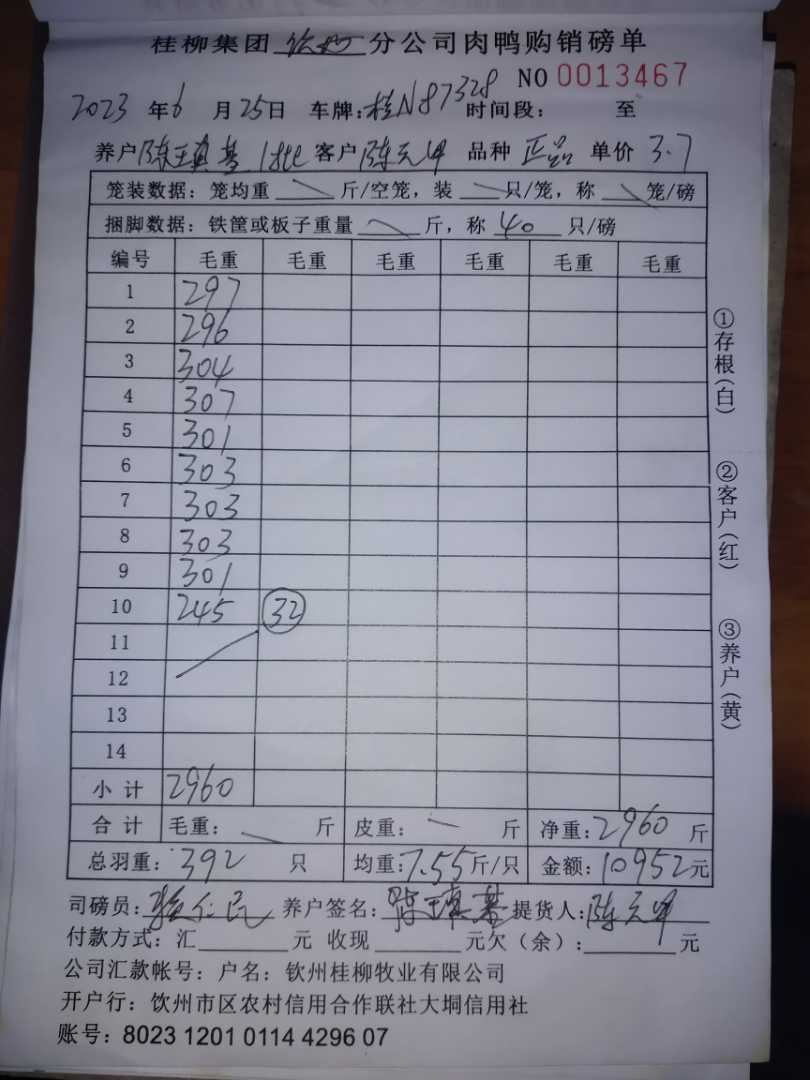 桂柳集团 钦州 分公司肉鸭购销磅单
NO 0013467
2023 年 6 月 25 日 车牌:桂N87328 时间段: 至
养户 陈王真基 1批 客户 陈元甲 品种 正品 单价 3.7
笼装数据:笼均重 斤/空笼,装 只/笼,称 笼/磅
捆脚数据:铁筐或板子重量 斤,称 40 只/磅
编号 毛重 毛重 毛重 毛重 毛重 毛重
1 297
2 296
3 304
4 307
5 301
6 303
7 303
8 303
9 301
10 245 32
11
12
13
14
小计 2960
合计 毛重: 斤 皮重: 斤 净重:2960 斤
总羽重:392 只 均重:7.55 斤/只 金额:10952 元
①存根(白)
②客户(红)
③养户(黄)
司磅员: 仁民 养户签名:陈王真基 提货人:陈元甲
付款方式:汇 元 收现 元欠(余): 元
公司汇款帐号:户名:钦州桂柳牧业有限公司
开户行:饮州市区农村信用合作联社大垌信用社
账号:8023 1201 0114 4296 07